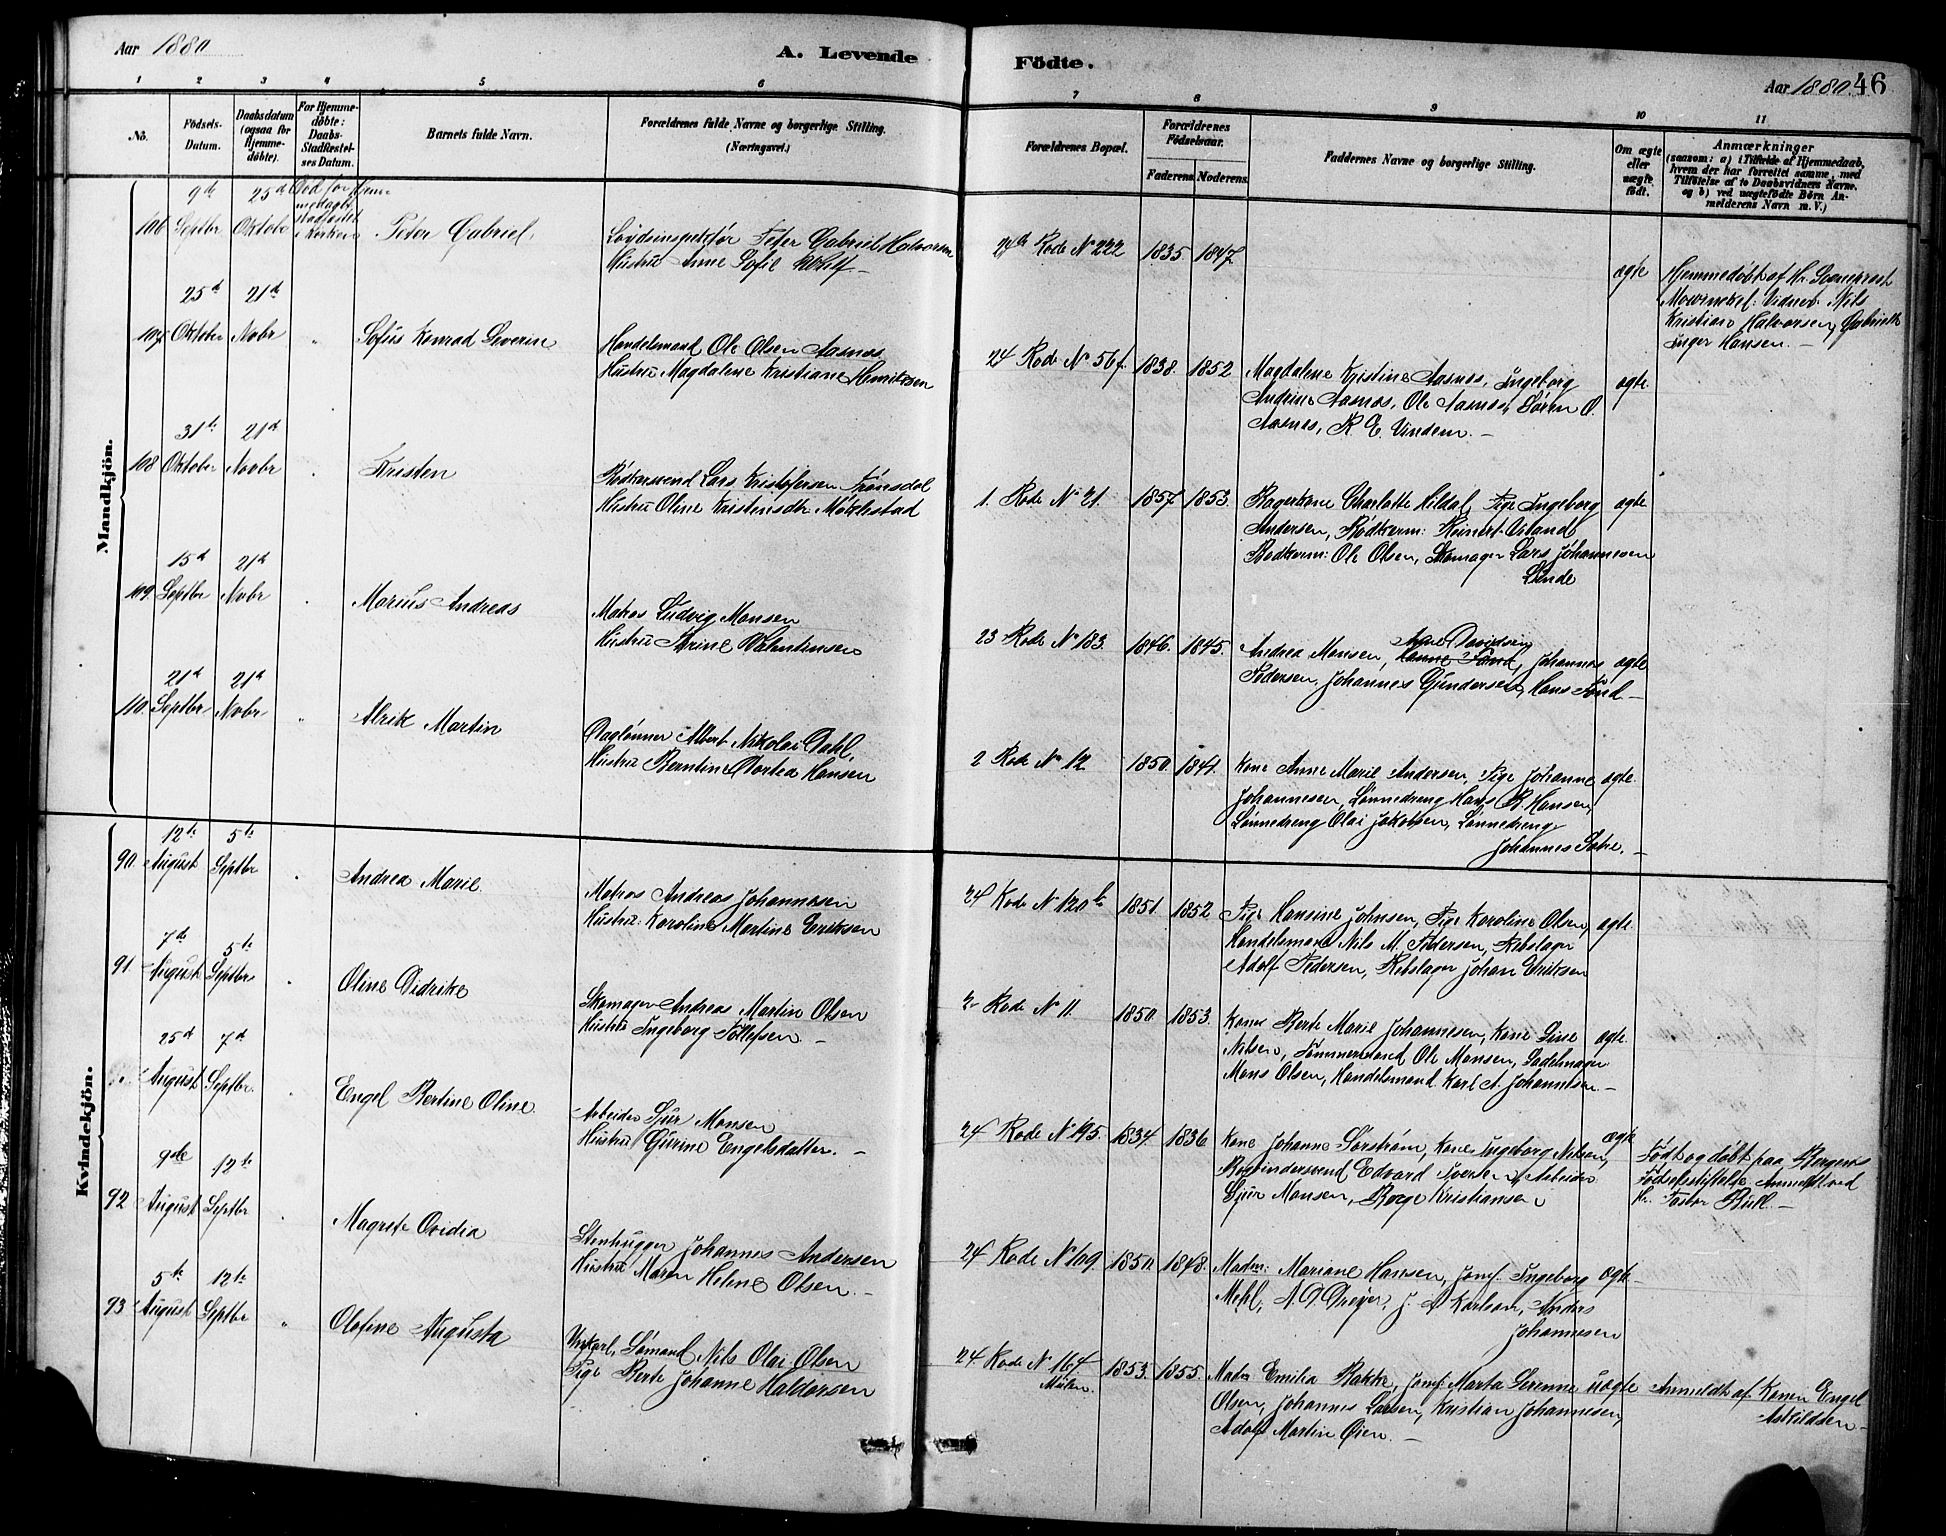 Aar 1880
A. Levende
Födte.
Aar 1880. 46
1 2 3 4 5 6 7 8 9 10 11
No.
Födsels-
Datum.
Daabsdatum
(ogsaa for
Hjemme-
döbte).
For Hjemme-
döbte:
Daabs-
Stadfæstel-
ses Datum.
Barnets fulde Navn.
Forældrenes fulde Navne og borgerlige Stilling.
(Næringsvei.)
Forældrenes Bopæl.
Forældrenes
Födselsaar.
Faderens. Moderens.
Faddernes Navne og borgerlige Stilling.
Om ægte
eller
uægte
födt.
Anmærkninger
(saasom: a) i Tilfælde af Hjemmedaab,
hvem der har forrettet samme, med
Tilföielse af to Daabsvidners Navne,
og b) ved uægtefödte Börn An-
melderens Navn m. V.)
Mandkjön.
9de 25d
106 Septbr Oktobr i Kirken Peter Gabriel
Peter Gabriel Halvorsen
Hustru Anne Sofie
24de Rode No 222 1835 1847
ægte
Hjemmedøbt af Hr. Sogneprest
Mowinckel. Vidner: Nils
Kristian Halvorsen, Gabrielle
Inger Hansen. —
25d 21d
107 Oktober Novbr " Sofus Konrad Severin
Handelsmand Ole Olsen Aasnes
Hustru Magdalene Kristiane Henriksen
24 Rode No 56f. 1838. 1852
Magdalene Kristine Aasnes, Ingeborg
Andrine Aasnes, Ole Aasnes, Søren O.
Aasnes, K. E. Vindem. —
ægte
31te 21d
108 Oktober Novbr " Kristen
Bødkersvend Lars Kristofersen
Hustru Oline Kristensdtr
1. Rode No 21. 1857. 1853.
Bagerkone Charlotte Hildal, Pige Ingeborg
Andersen, Bødkerm: Reinert
Bødkerm: Ole Olsen, Skomager Lars Johannesen
Lunde
ægte
15d 21d
109 Septbr Novbr " Marius Andreas
Matros Ludvig Monsen
Hustru Valentinsen
23 Rode No 183. 1846. 1845.
Andrea Monsen, Davidsen, Johannes
Pedersen, Johannes Gundersen, Hans —
ægte
21d 21d
110. Septbr Novbr " Alrik Martin
Daglønner Albert Nikolai Dahl,
Hustru Berntine Dortea Hansen
2 Rode No 12 1850. 1841.
Kone Anne Marie Andersen, Pige Johanne
Johannesen, Lønnedreng Hans B. Hansen,
Lønnedreng Olai Jakobsen, Lønnedreng
Johannes —
ægte
Kvindekjön.
12te 5te
90. August Septbr " Andrea Marie
Matros Andreas Johannesen
Hustru: Karoline Martine Eriksen
24 Rode No 120b 1851. 1852
Pige Hansine Johnsen, Pige Karoline Olsen,
Handelsmand Nils M. Pedersen, Rebslager
Adolf Pedersen, Rebslager Johan Eriksen
ægte
7de 5te
91. August Septbr " Oline Didrike
Skomager Andreas Martin Olsen
Hustru Ingeborg Tollefsen. —
2 Rode No 11. 1850. 1853.
Kone Berte Marie Johannesen, Kone Lise
Nilsen, Tømmermand Ole Monsen, Sadelmager
Mons Olsen, Handelsmand Karl A. Johannesen. —
ægte
25d 7d
August Septbr. " Engel Bertine Oline
Arbeider Sjur Monsen
Hustru Gurine Engelsdatter. —
24 Rode No 195. 1834. 1836
Kone Johanne Sørstrøm, Kone Ingeborg Nilsen,
Bogbindersvend Edvard Iversen, Arbeider
Sjur Monsen, Børge Kristiansen
ægte
Født og døbt paa Bergens
Fødselsstiftelse. Anmeldt ved
Hr. Pastor Bull. —
9de 12te
92 August Septbr " Magrete Ovidia
Stenhugger Johannes Andersen
Hustru Maren Helene Olsen. —
24 Rode No 109. 1850. 1848.
Madm: Mariane Hansen, Jomf. Ingeborg
Mehl, A. D. Dreyer, J. A Karlson, Anders
Johannesen
ægte
5te 12te
93 August Septbr " Olefine Augusta
Ungkarl, Sømand Nils Olai Olsen
Pige Berte Johanne Haldorsen
24 Rode No 164
Mulen. 1853. 1855.
Madm Emilia Bakke, Jomf. Marta Serenne
Olsen, Johannes Larsen, Kristian Johannesen,
Adolf Martin Øien. —
uægte
Anmeldt af Konen Engel
Askildsen —